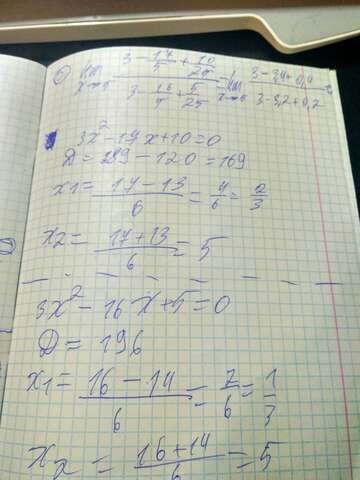 б) lim x→5 (3 - 17/5 + 10/25)/(3 - 16/5 + 5/25) = lim x→5 (3-3,4+0,4)/(3-3,2+0,2)
3x² - 17x + 10 = 0
D = 289 - 120 = 169
x1 = (17 - 13)/6 = 4/6 = 2/3
x2 = (17 + 13)/6 = 5
3x² - 16x + 5 = 0
D = 196
x1 = (16 - 14)/6 = 2/6 = 1/3
x2 = (16 + 14)/6 = 5